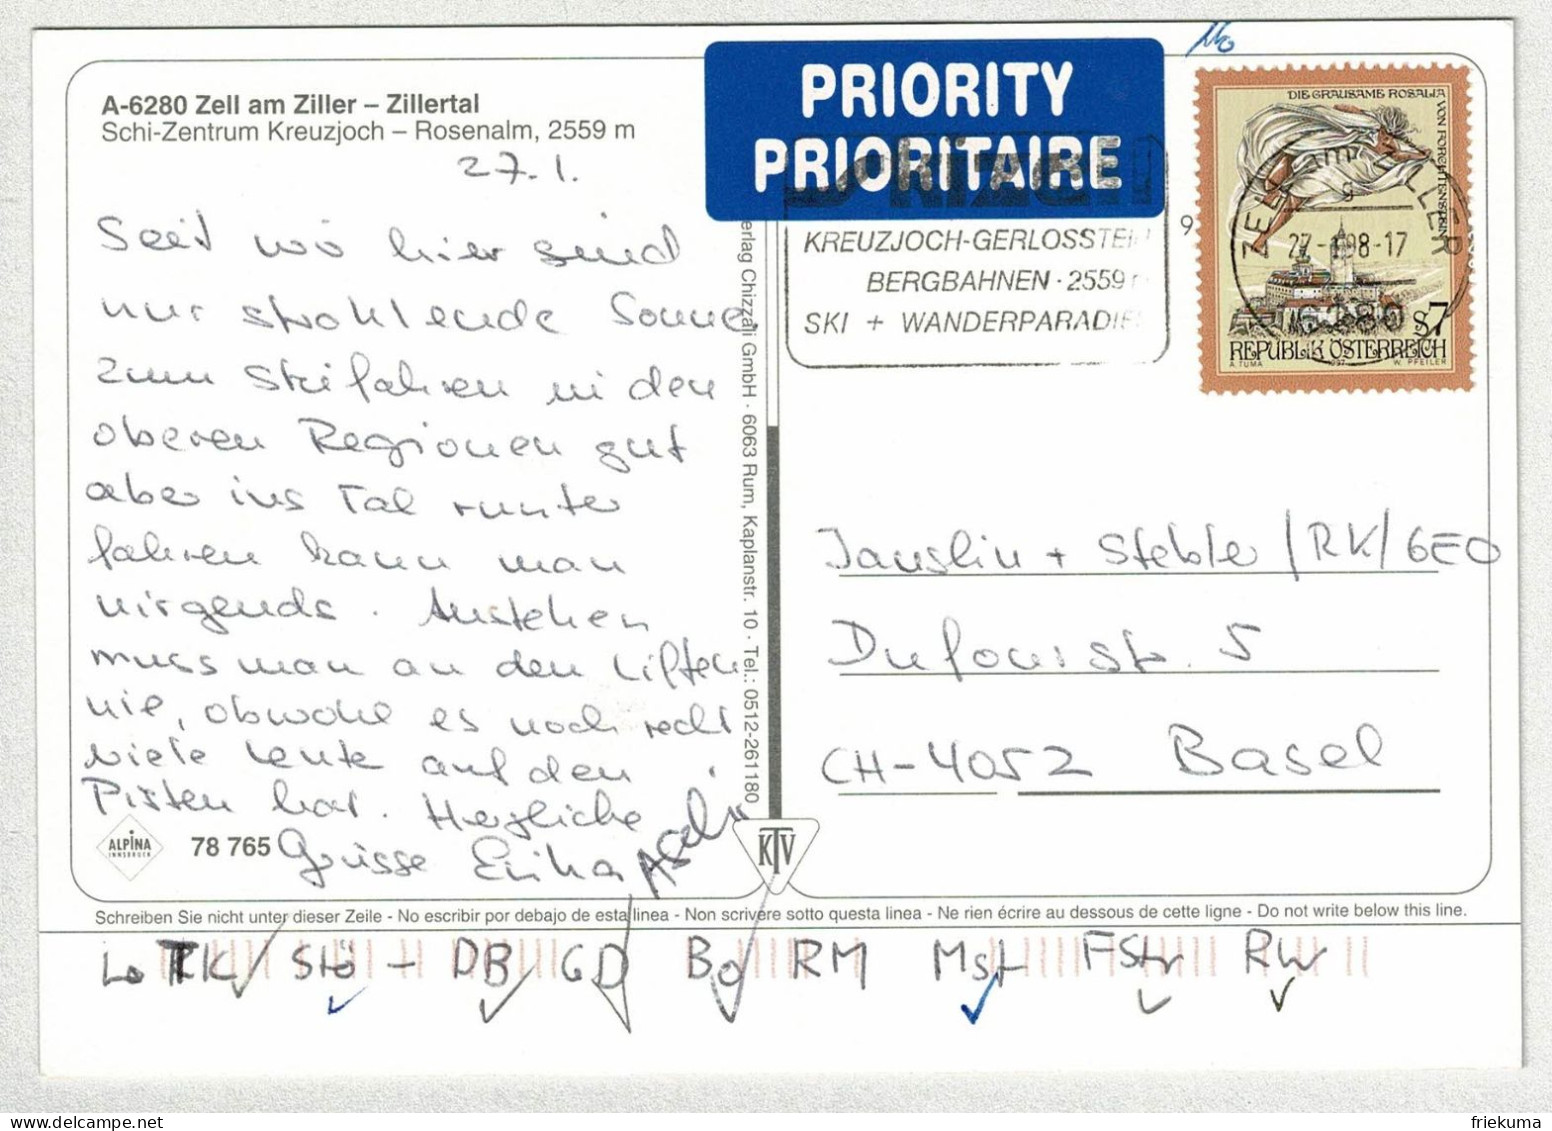 A-6280 Zell am Ziller – Zillertal
Schi-Zentrum Kreuzjoch – Rosenalm, 2559 m
27.1.
Seit wir hier sind
nur strahlende Sonne
zum Skifahren in den
oberen Regionen gut
aber ins Tal runter
fahren kann man
nirgends. Anstehen
muss man an den Liften
nie, obwohl es noch recht
viele Leute auf den
Pisten hat. Herzliche
Grüsse Erika
ALPINA
INNSBRUCK
78 765
erlag Chizzali GmbH · 6063 Rum, Kaplanstr. 10 · Tel.: 0512-261180
KTV
PRIORITY
PRIORITAIRE
KREUZJOCH-GERLOSSTEI
BERGBAHNEN · 2559
SKI + WANDERPARADIE
9
DIE GRAUSAME ROSALIA
VON FORCHTENSTEIN
ZELL AM ZILLER
g
27-1.98-17
6280
S7
REPUBLIK ÖSTERREICH
A. TUMA 1997 W. PFEILER
Jauslin + Stebler /RK/GEO
Dufourstr. 5
CH-4052 Basel
Schreiben Sie nicht unter dieser Zeile - No escribir por debajo de esta linea - Non scrivere sotto questa linea - Ne rien écrire au dessous de cette ligne - Do not write below this line.
RK/ Stö - DB GD Bo RM Mst FStr RW
friekuma